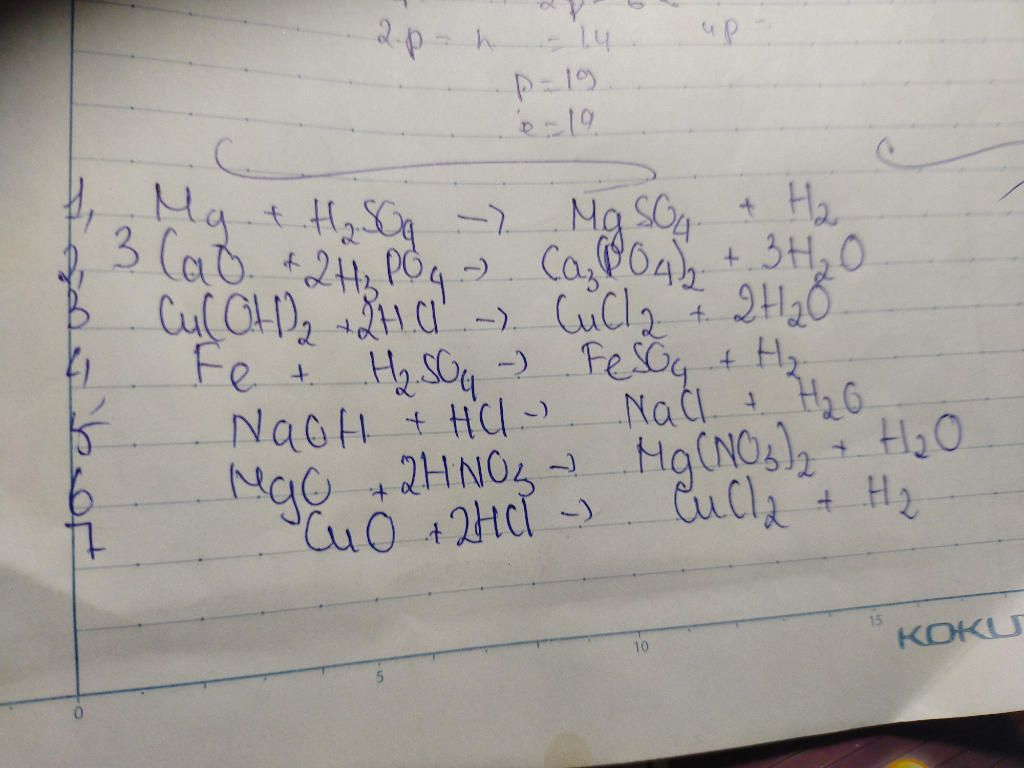 2p - n = 14 4p =
p = 19
e = 19
1, Mg + H₂SO₄ → MgSO₄ + H₂
2, 3 CaO + 2H₃PO₄ → Ca₃(PO₄)₂ + 3H₂O
3 Cu(OH)₂ + 2HCl → CuCl₂ + 2H₂O
4 Fe + H₂SO₄ → FeSO₄ + H₂
5 NaOH + HCl → NaCl + H₂O
6 MgO + 2HNO₃ → Mg(NO₃)₂ + H₂O
7 CuO + 2HCl → CuCl₂ + H₂
0 5 10 15 KOKU